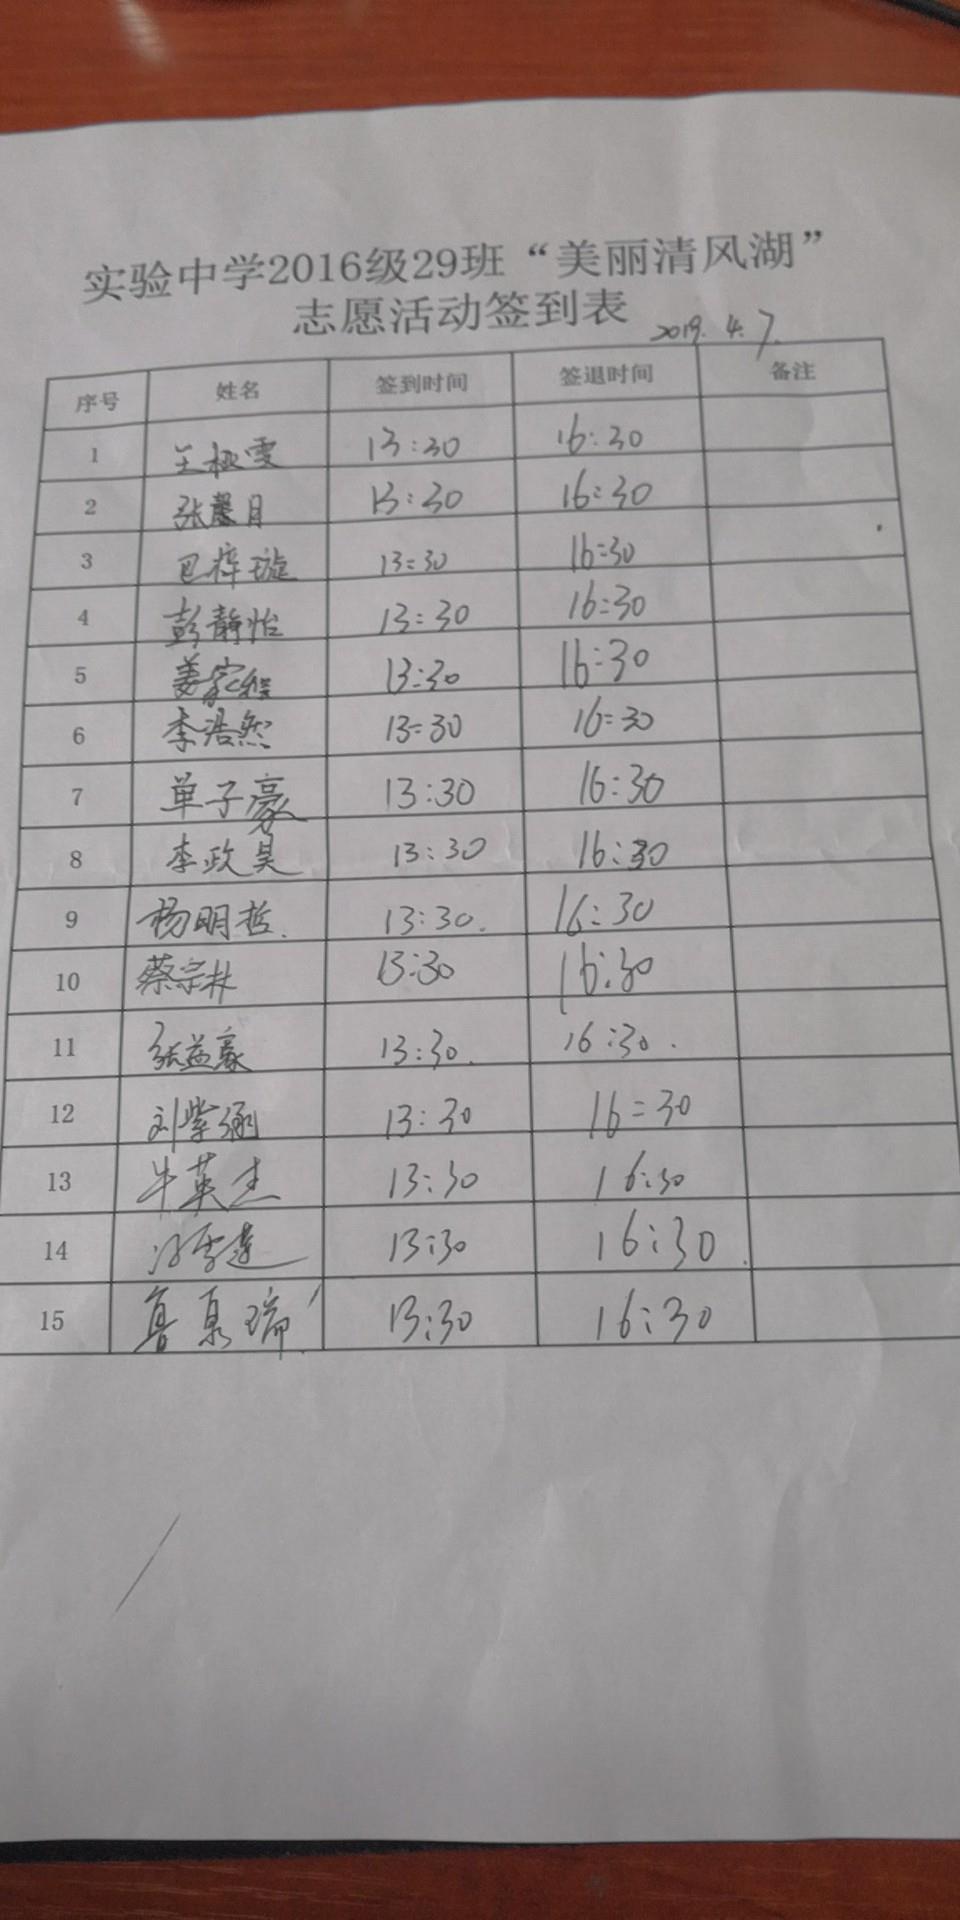 实验中学2016级29班“美丽清风湖”
志愿活动签到表
2019.4.7.
序号 姓名 签到时间 签退时间 备注
1 王极雯 13:30 16:30
2 张馨月 13:30 16:30
3 巴梓璇 13:30 16:30
4 彭静怡 13:30 16:30
5 姜家程 13:30 16:30
6 李浩然 13:30 16:30
7 单子豪 13:30 16:30
8 李政昊 13:30 16:30
9 杨明哲. 13:30. 16:30
10 蔡宗林 13:30 16:30
11 张益豪 13:30. 16:30.
12 刘紫涵 13:30 16:30
13 牛英杰 13:30 16:30
14 13:30 16:30
15 鲁泉瑞 13:30 16:30